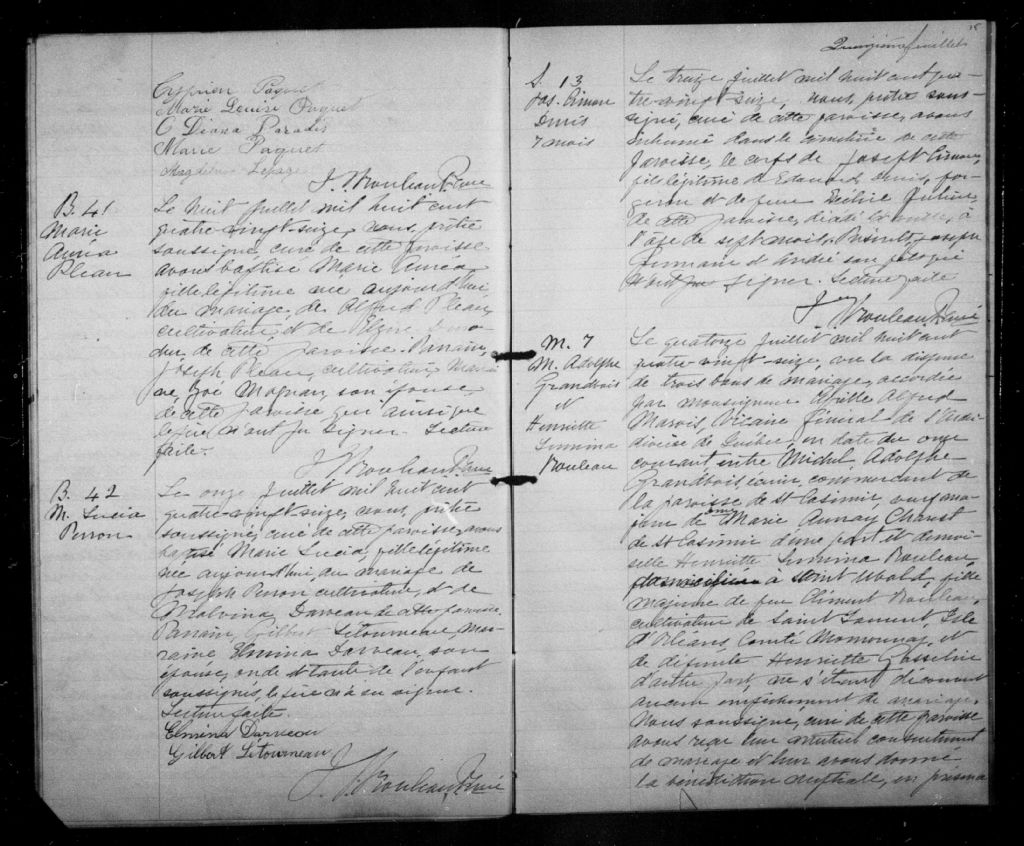 Cyprien Paquet
Marie Louise Paquet
C Diana Paradis
Marie Paquet
Magdeleine Lepage
J. Rouleau Ptre curé
B. 41
Marie
Auréa
Pléau
Le huit juillet mil huit cent
quatre-vingt-seize, nous, prêtre
soussigné, curé de cette paroisse
avons baptisé Marie Auréa
fille légitime née aujourd'hui
du mariage, de Alfred Pléau,
cultivateur, et de
de cette paroisse. Parrain,
Joseph Pléau, cultivateur Marrai
ne, Zoé Magnan, son épouse
de cette paroisse qui ainsi que
le père n'ont pu signer. Lecture
faite.
J. Rouleau Ptre curé
B. 42
M. Lucia
Perron
Le onze juillet mil huit cent
quatre-vingt-seize, nous, prêtre
soussigné, curé de cette paroisse, avons
baptisé Marie Lucia, fille légitime
née aujourd'hui, du mariage de
Joseph Perron cultivateur, et de
Malvina Darveau de cette paroisse
Parrain, Gilbert Letourneau, mar-
raine Elmina Darveau, son
épouse, oncle et tante de l'enfant
soussignés, le père n'a su signer.
Lecture faite.
Elmina Darveau
Gilbert Letourneau
J. Rouleau Ptre curé
15
Quinzième feuillet
S. 13
Jos. Simon
Denis
7 mois
Le treize juillet mil huit cent qua-
tre-vingt-seize, nous, prêtre sous-
signé, curé de cette paroisse, avons
inhumé dans le cimetière de cette
paroisse, le corps de Joseph Simon,
fils légitime de Edouard Denis, for-
geron et de feue
de cette paroisse, décédé la veille, à
l'âge de sept mois. Présents, Joseph
Germain et André son fils qui
n'ont pu signer. Lecture faite
J. Rouleau Ptre curé
M. 7
M. Adolphe
Grandbois
et
Henriette
Luumina
Rouleau
Le quatorze juillet mil huit cent
quatre-vingt-seize, vu la dispense
de trois bans de mariage, accordée
par monseigneur Cyrille Alfred
Marois, Vicaire Général de l'Archi
diocèse de Québec, en date du onze
courant entre Michel Adolphe
Grandbois, écuier, commerçant de
la paroisse de St Casimir, veuf ma-
jeur de dme Marie Aunay Charest
de St Casimir d'une part et demoi-
selle Henriette Luumina Rouleau,
domiciliée à Saint Ubald, fille
majeure de feu Clément Rouleau,
cultivateur de Saint Laurent, Isle
d'Orléans, Comté Momorency, et
de défunte Henriette Gosselin
d'autre part, ne s'étant découvert
aucun empêchement de mariage.
Nous soussigné, curé de cette paroisse
avons reçu leur mutuel consentement
de mariage et leur avons donné
la bénédiction nuptiale, en présence